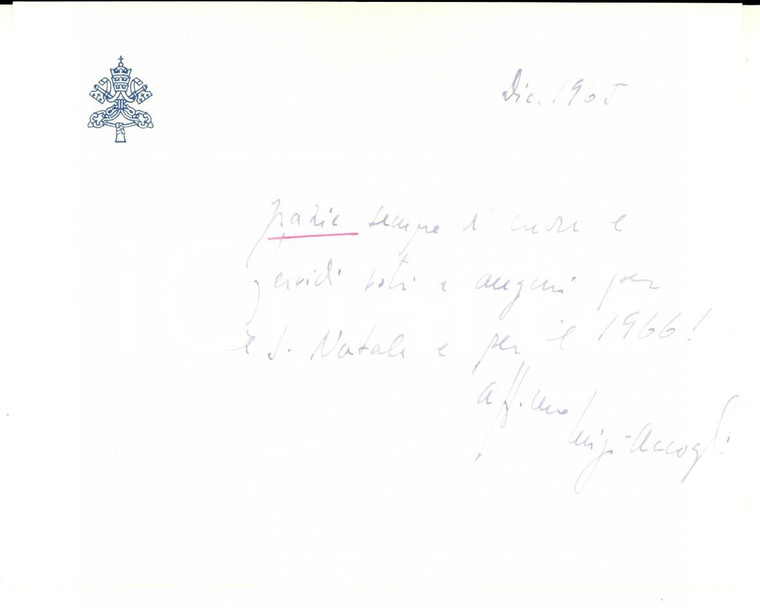 Dic. 1965
grazie sempre di cuore e
fervidi voti e auguri per
il S. Natale e per il 1966!
aff.mo
Luigi Accogli